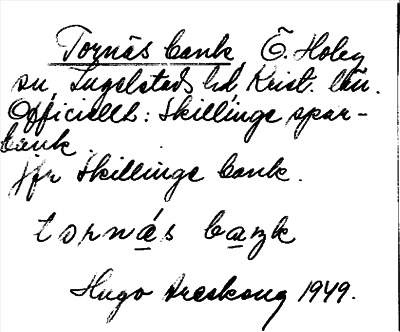 Tornäs bank, Ö. Hoby
sn, Ingelstads hd, Krist. län.
Officiellt: Skillinge spar-
bank.
jfr Skillinge bank.
tornás baŋk
Hugo Areskoug 1949.